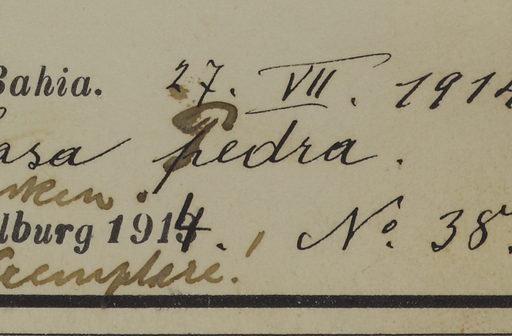 Bahia. 27. VII. 1914
Casa Pedra.
rken.
lburg 1914. No. 387
Exemplare.